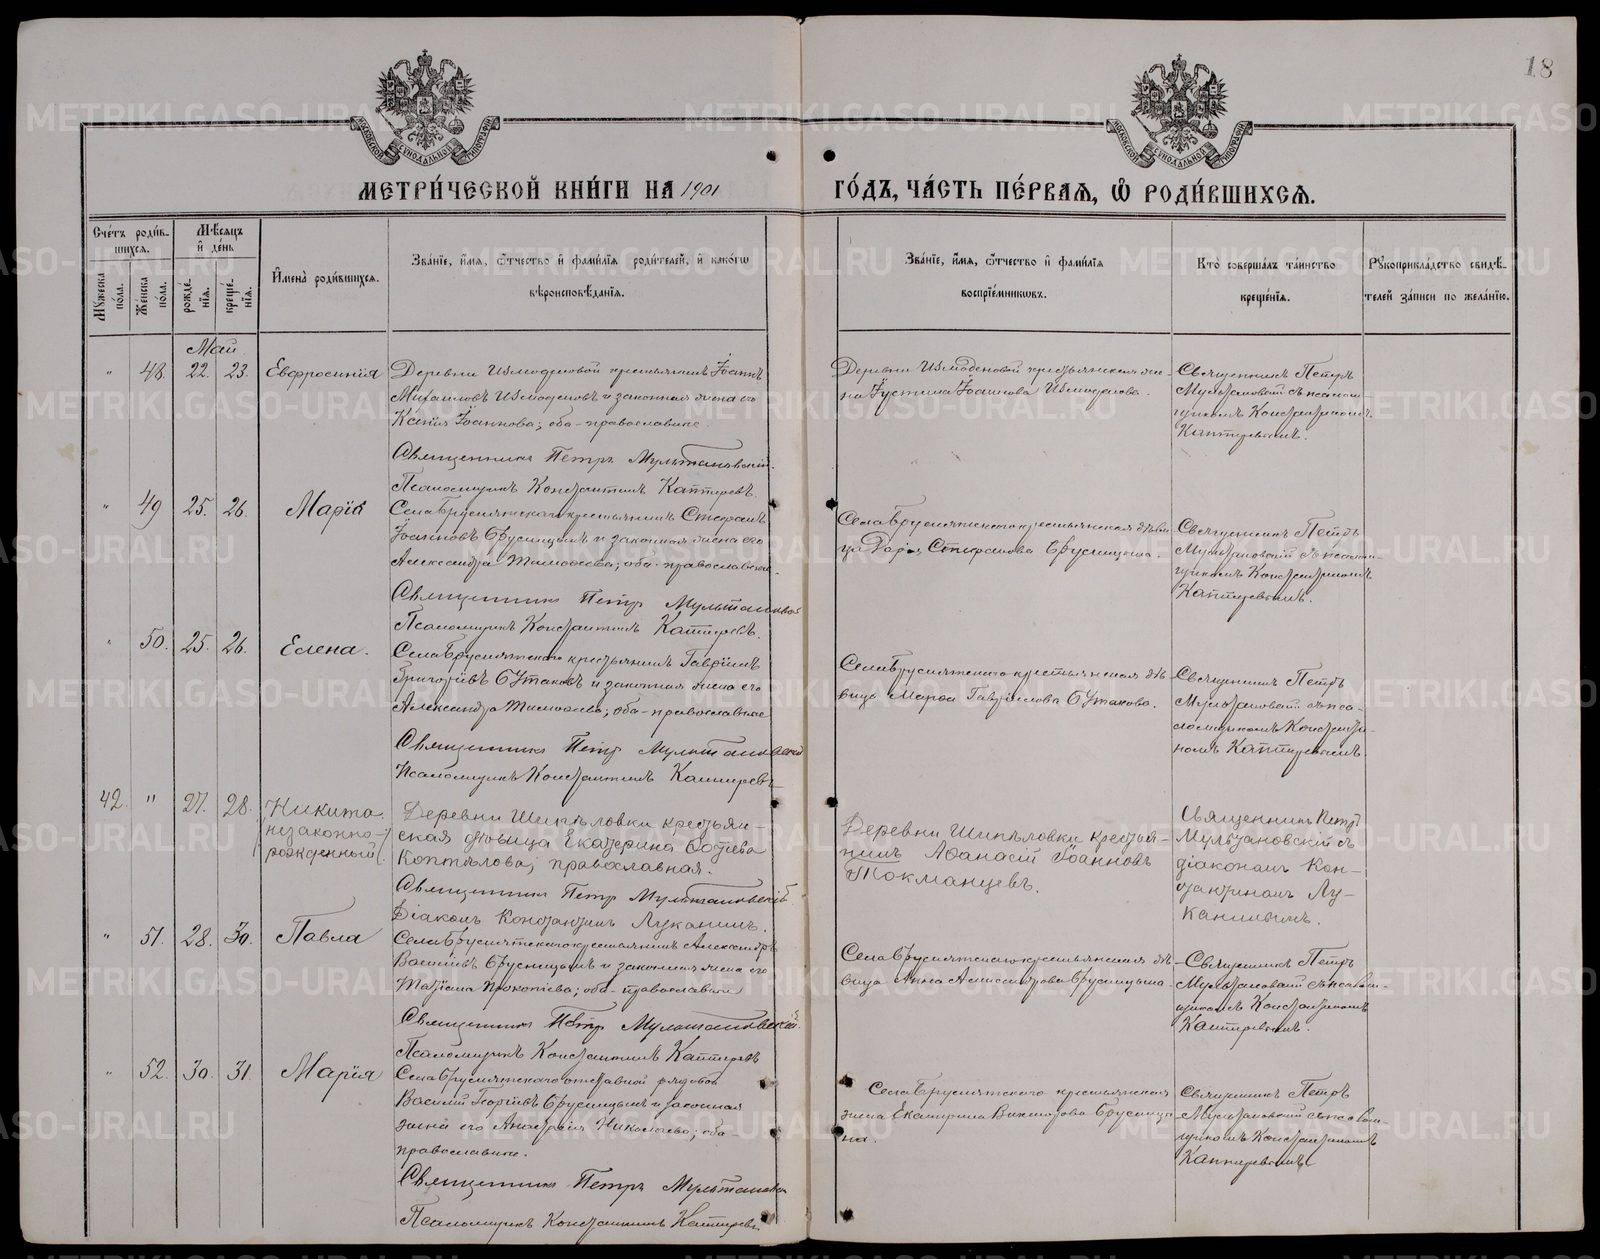 18
МЕТРИ́ЧЕСКОЙ КНИ́ГИ НА 1901 ГО́ДЪ, ЧА́СТЬ ПЕ́РВАѦ, Ѡ҆ РОДИ́ВШИХСѦ.
Сче́тъ роди́в-
шихсѧ.
Мꙋ́жеска по́ла.
Же́нска по́ла.
Мѣ́сѧцъ
и҆ де́нь
рожде́-
нїѧ.
креще́-
нїѧ.
И҆мена̀ роди́вшихсѧ.
Зва́нїе, и҆́мѧ, ѻ҆́тчество и҆ фами́лїѧ роди́телей, и҆ како́гѡ
вѣроисповѣ́данїѧ.
Зва́нїе, и҆́мѧ, ѻ҆́тчество и҆ фами́лїѧ
воспрїе́мникѡвъ.
Кто̀ соверша́лъ та́инство
креще́нїѧ.
Рꙋкоприкла́дство свидѣ́-
телей за́писи по жела́нїю.
Май
" 48. 22. 23. Евфросинія
Деревни Измоденовой крестьянинъ Іоаннъ
Михаиловъ Измоденовъ и законная жена его
Ксенія Іоаннова; оба-православные.
Священникъ Петръ Мультановскій.
Псаломщикъ Константинъ Каптеревъ.
Деревни Измоденовой крестьянская же-
на Іустина Іоаннова Измоденова.
Священникъ Петръ
Мультановскій съ псалом-
щикомъ Константиномъ
Каптеревымъ.
" 49 25. 26. Марія
Села Брусянтскаго крестьянинъ Стефанъ
Іоанновъ Брусницынъ и законная жена его
Александра Тимоѳеева; оба-православные.
Священникъ Петръ Мультановскій
Псаломщикъ Константинъ Каптеревъ.
Села Брусянтскаго крестьянская дѣви-
ца Дарія Стефанова Брусницына.
Священникъ Петръ
Мультановскій съ псалом-
щикомъ Константиномъ
Каптеревымъ.
" 50. 25. 26. Елена.
Села Брусянтскаго крестьянинъ Гавріилъ
Григоріевъ и законная жена его
Александра Тимоѳеева; оба-православные
Священникъ Петръ Мультановскій
Псаломщикъ Константинъ Каптеревъ
Села Брусянтскаго крестьянская дѣ-
вица Гавріилова
Священникъ Петръ
Мультановскій съ пса-
ломщикомъ Константи-
номъ Каптеревымъ.
42. " 27. 28. Никита.
(незаконно-
рожденный).
Деревни Шипѣловки крестьян-
ская дѣвица Екатерина
Коптѣлова; православная.
Священникъ Петръ Мультановскій
Діаконъ Константинъ Луканинъ.
Деревни Шипѣловки крестья-
нинъ Аѳанасій Іоанновъ
Токманцевъ.
Священникъ Петръ
Мультановскій съ
діакономъ Кон-
стантиномъ Лу-
канинымъ.
" 51. 28. 30. Павла
Села Брусянтскаго крестьянинъ Александръ
Васильевъ Брусницынъ и законная жена его
Татіана Прокопіева; оба-православные
Священникъ Петръ Мультановскій.
Псаломщикъ Константинъ Каптеревъ
Села Брусянтскаго крестьянская дѣ-
вица Анна Александрова Брусницына.
Священникъ Петръ
Мультановскій съ псалом-
щикомъ Константиномъ
Каптеревымъ.
" 52. 30. 31. Марія
Села Брусянтскаго отставной рядовой
Василій Георгіевъ Брусницынъ и законная
жена его Анастасія Николаева; оба-
православные.
Священникъ Петръ Мультановскій
Псаломщикъ Константинъ Каптеревъ.
Села Брусянтскаго крестьянская
жена Екатерина Викторова Брусницы-
на.
Священникъ Петръ
Мультановскій съ псалом-
щикомъ Константиномъ
Каптеревымъ